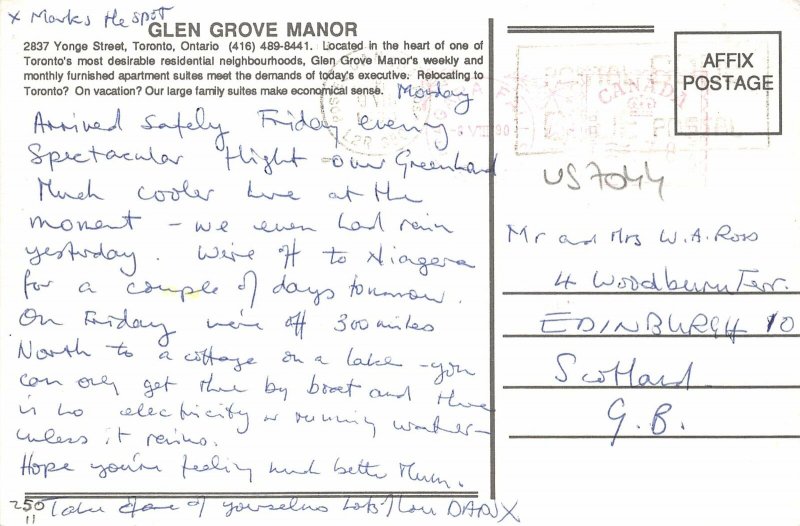 x Marks the spot
GLEN GROVE MANOR
2837 Yonge Street, Toronto, Ontario (416) 489-8441. Located in the heart of one of
Toronto's most desirable residential neighbourhoods, Glen Grove Manor's weekly and
monthly furnished apartment suites meet the demands of today's executive. Relocating to
Toronto? On vacation? Our large family suites make economical sense.
Monday
Arrived safely Friday evening
Spectacular flight over Greenland
Much cooler here at the
moment - we even had rain
yesterday. We're off to Niagera
for a couple of days tomorrow.
On Friday we're off 300 miles
North to a cottage on a lake - you
can only get there by boat and there
is no electricity or running water -
unless it rains.
Hope you're feeling much better Mum.
Take care of yourselves Lots of love
250
11
AFFIX
POSTAGE
CANADA
US7044
Mr and Mrs W.A. Ross
4 Woodburn Terr.
EDINBURGH 10
Scotland
G.B.